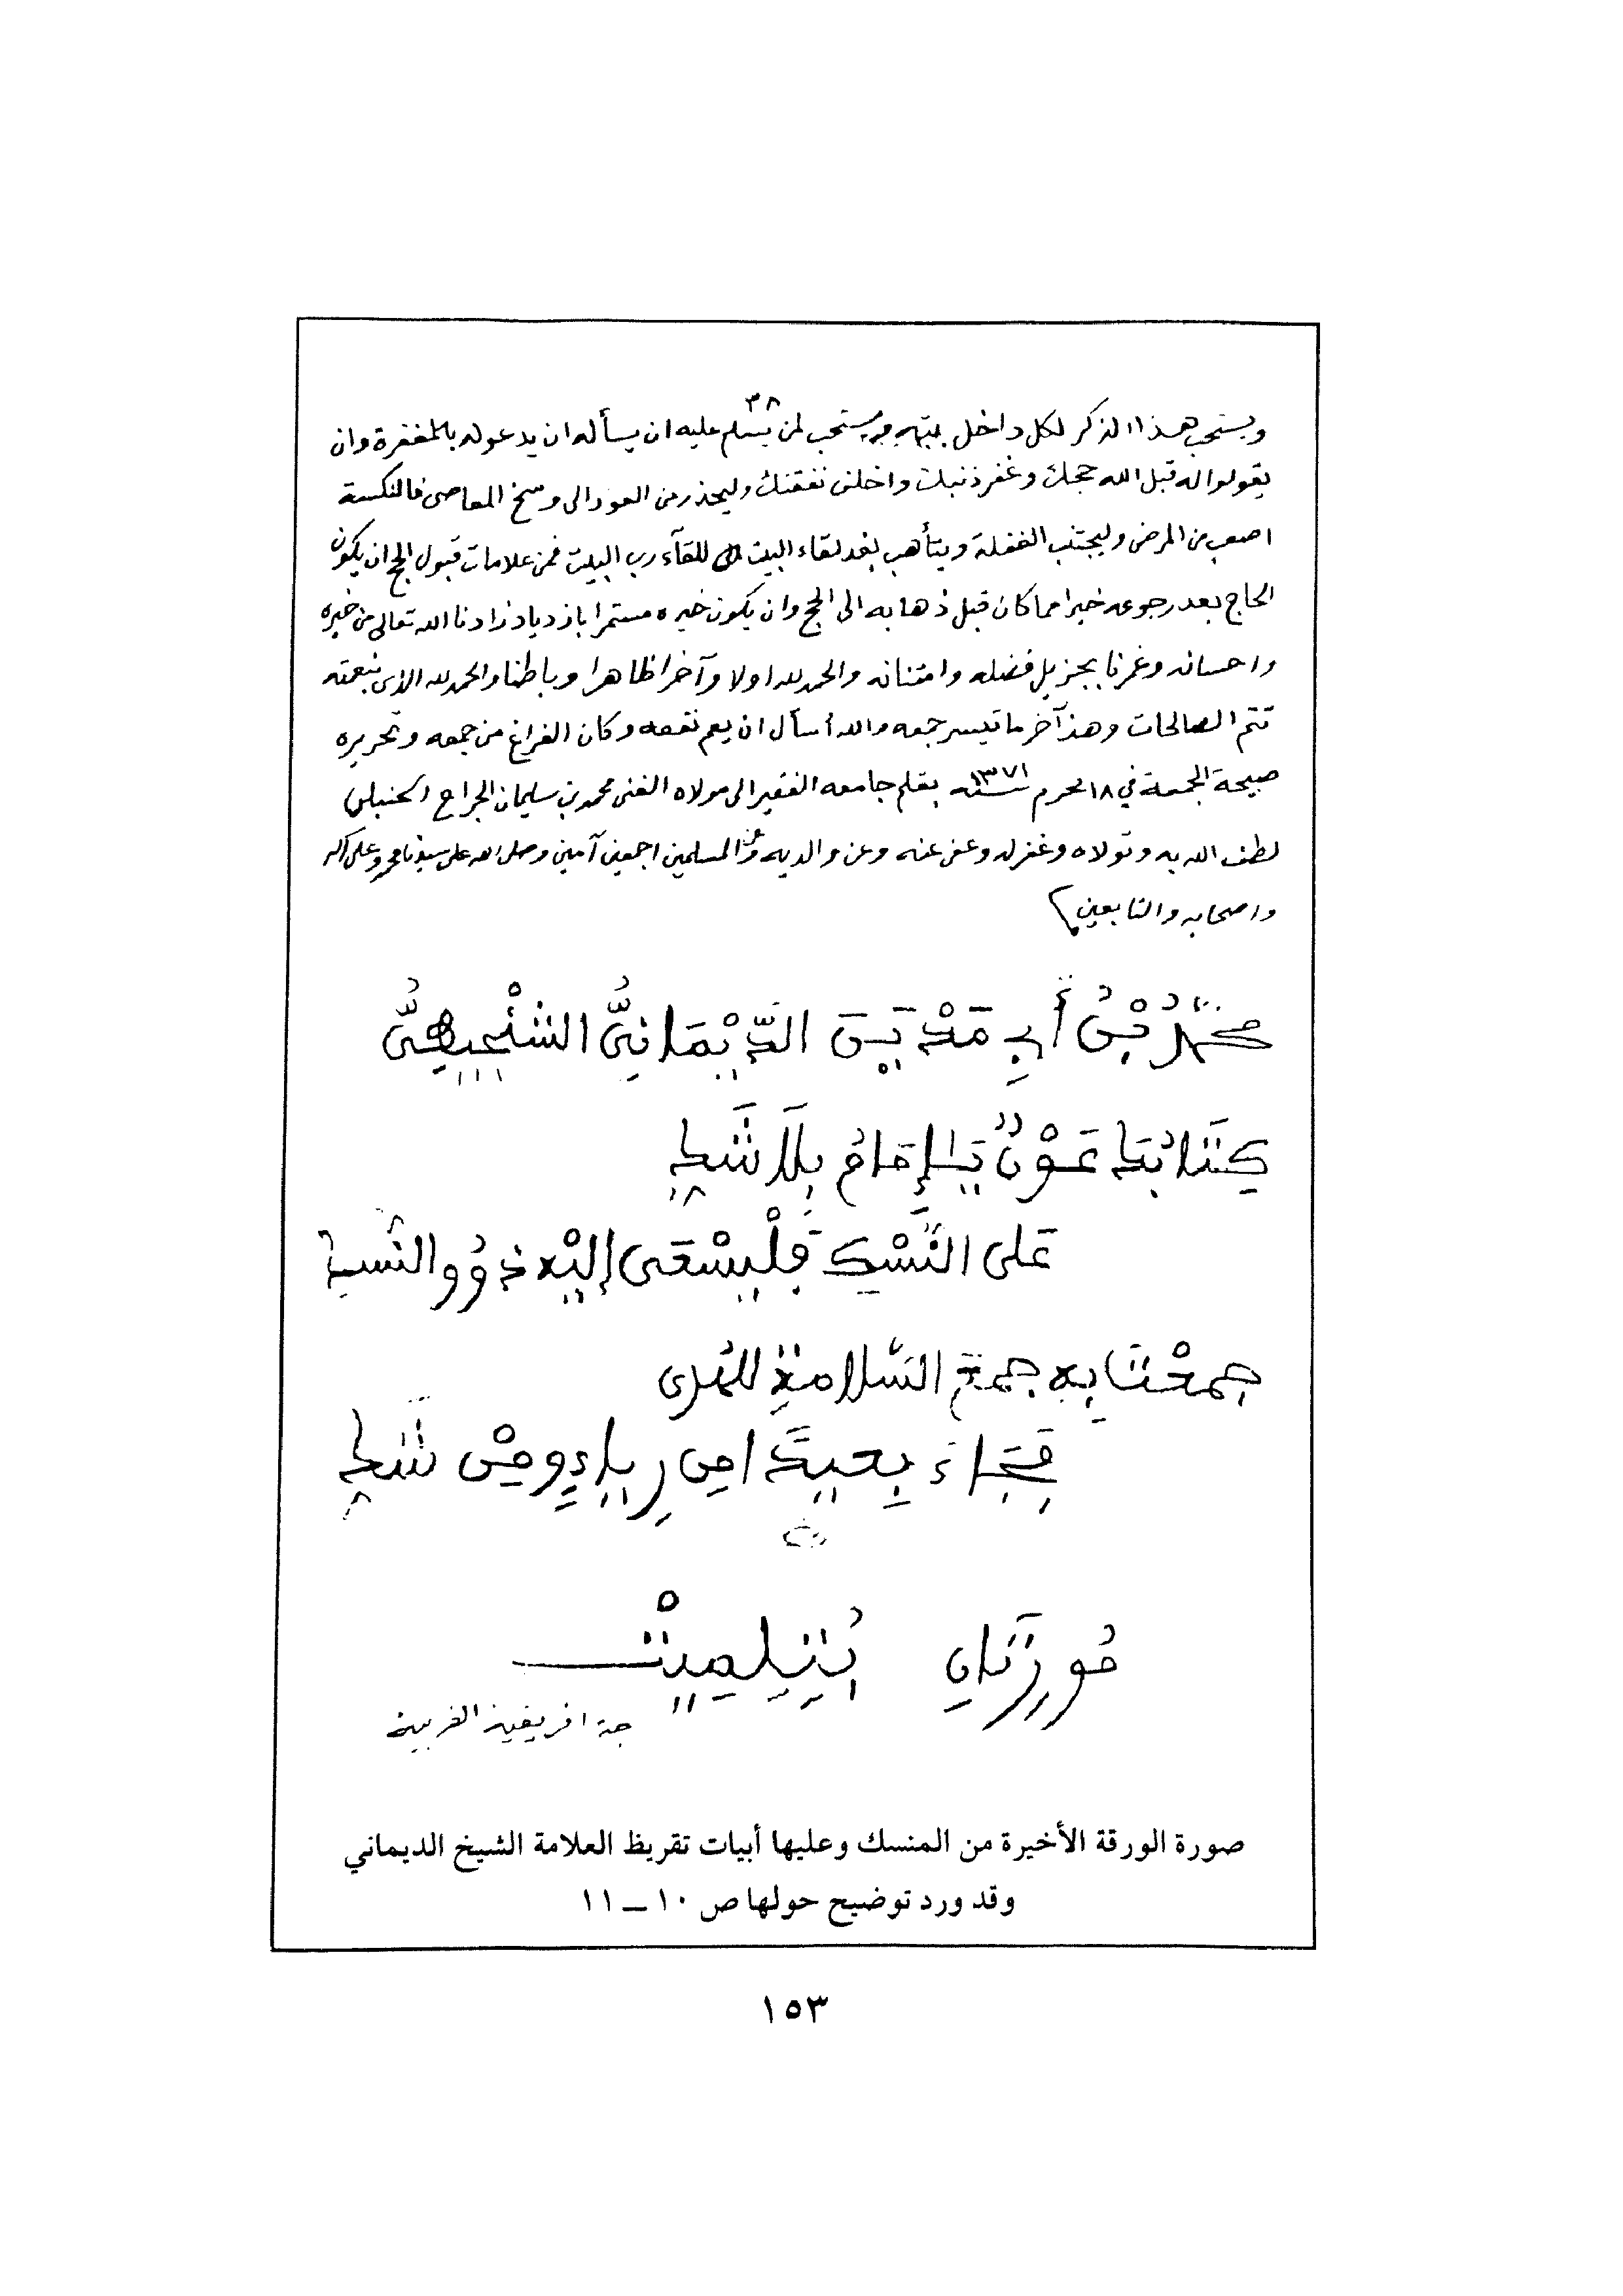 ٣٨
ويستحب هذا الذكر لكل داخل بيته ويستحب لمن يسلم عليه ان يسأله ان يدعو له بالمغفرة وان
يقولوا له قبل الله حجك وغفر ذنبك واخلف نفقتك وليحذر من العود الى وسخ المعاصي فالنكسة
اصعب من المرض وليجتنب الغفلة ويتأهب بعد لقاء البيت للقآء رب البيت فمن علامات قبول الحج ان يكون
الحاج بعد رجوعه خيرا مما كان قبل ذهابه الى الحج وان يكون خيره مستمرا بازدياد زادنا الله تعالى من خيره
واحسانه وغمرنا بجزيل فضله وامتنانه والحمد لله اولا وآخرا ظاهرا وباطنا والحمد لله الذي بنعمته
تتم الصالحات وهذ آخر ما تيسر جمعه والله أسأل ان يعم نفعه وكان الفراغ من جمعه وتحريره
صبيحة الجمعة في ١٨ محرم سنة ١٣٧١ بقلم جامعه الفقير الى مولاه الغني محمد بن سليمان الجراح الحنبلي
لطف الله به وتولاه وغفر له وعفى عنه وعن والديه وعن المسلمين اجمعين آمين وصلى الله على سيدنا محمد وعلى آله
واصحابه والتابعين
محمدُ بْنُ أَبِي مَدْيَنَ الدَّيْمَانِيُّ الشنْجيطيُّ
كِتَابُكَ عَوْنٌ يَا إِمَامُ بِلَا شَكِّ
عَلى النُّسْكِ فَلْيَسْعَى إِلَيْهِ ذَوُو النُّسكِ
جمعْتَ بِهِ جمعَ السَّلامةِ للهُدى
فَجَاءَ بعيدًا مِن رِيَاءٍ ومِنْ شَكِّ
مُورِتَانِ بُتِلِمِيتْ
جهة افريقية الغربية
صورة الورقة الأخيرة من المنسك وعليها أبيات تقريظ العلامة الشيخ الديماني
وقد ورد توضيح حولها ص ١٠ ــ ١١
١٥٣